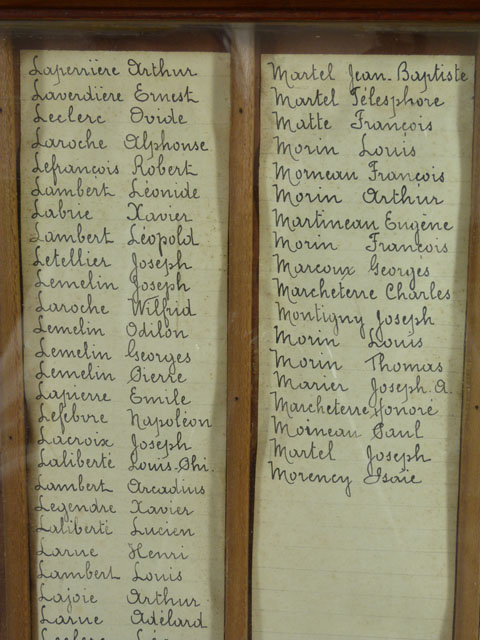 Laperrière Arthur
Laverdière Ernest
Leclerc Ovide
Laroche Alphonse
Lefrançois Robert
Lambert Léonide
Labrie Xavier
Lambert Léopold
Letellier Joseph
Lemelin Joseph
Laroche Wilfrid
Lemelin Odilon
Lemelin Georges
Lemelin Pierre
Lapierre Emile
Lefebvre Napoléon
Lacroix Joseph
Laliberté Louis-Phi.
Lambert Arcadius
Legendre Xavier
Laliberté Lucien
Larue Henri
Lambert Louis
Lajoie Arthur
Larue Adélard
Leclerc
Martel Jean-Baptiste
Martel Télesphore
Matte François
Morin Louis
Morneau François
Morin Arthur
Martineau Eugène
Morin François
Marcoux Georges
Marcheterre Charles
Montigny Joseph
Morin Louis
Morin Thomas
Marier Joseph A.
Marcheterre Honoré
Moineau Paul
Martel Joseph
Morency Isaïe